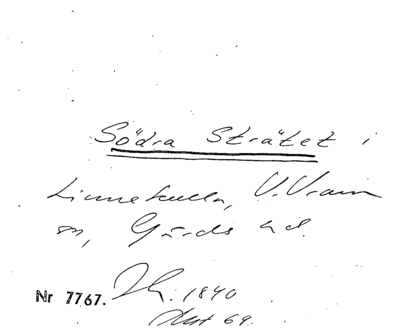 Södra Strätet i
Linnekulla, V. Vram
sn, Gärds hd.
Nr 7767. 1840
69.